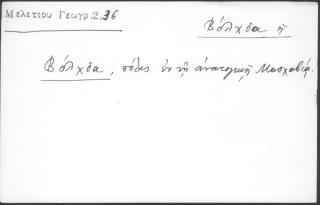 Μελετίου Γεωγρ.2,36
Βόλχδα ἡ
Βόλχδα, πόλις ἐν τῇ ἀνατολικῇ Μοσχοβίᾳ.